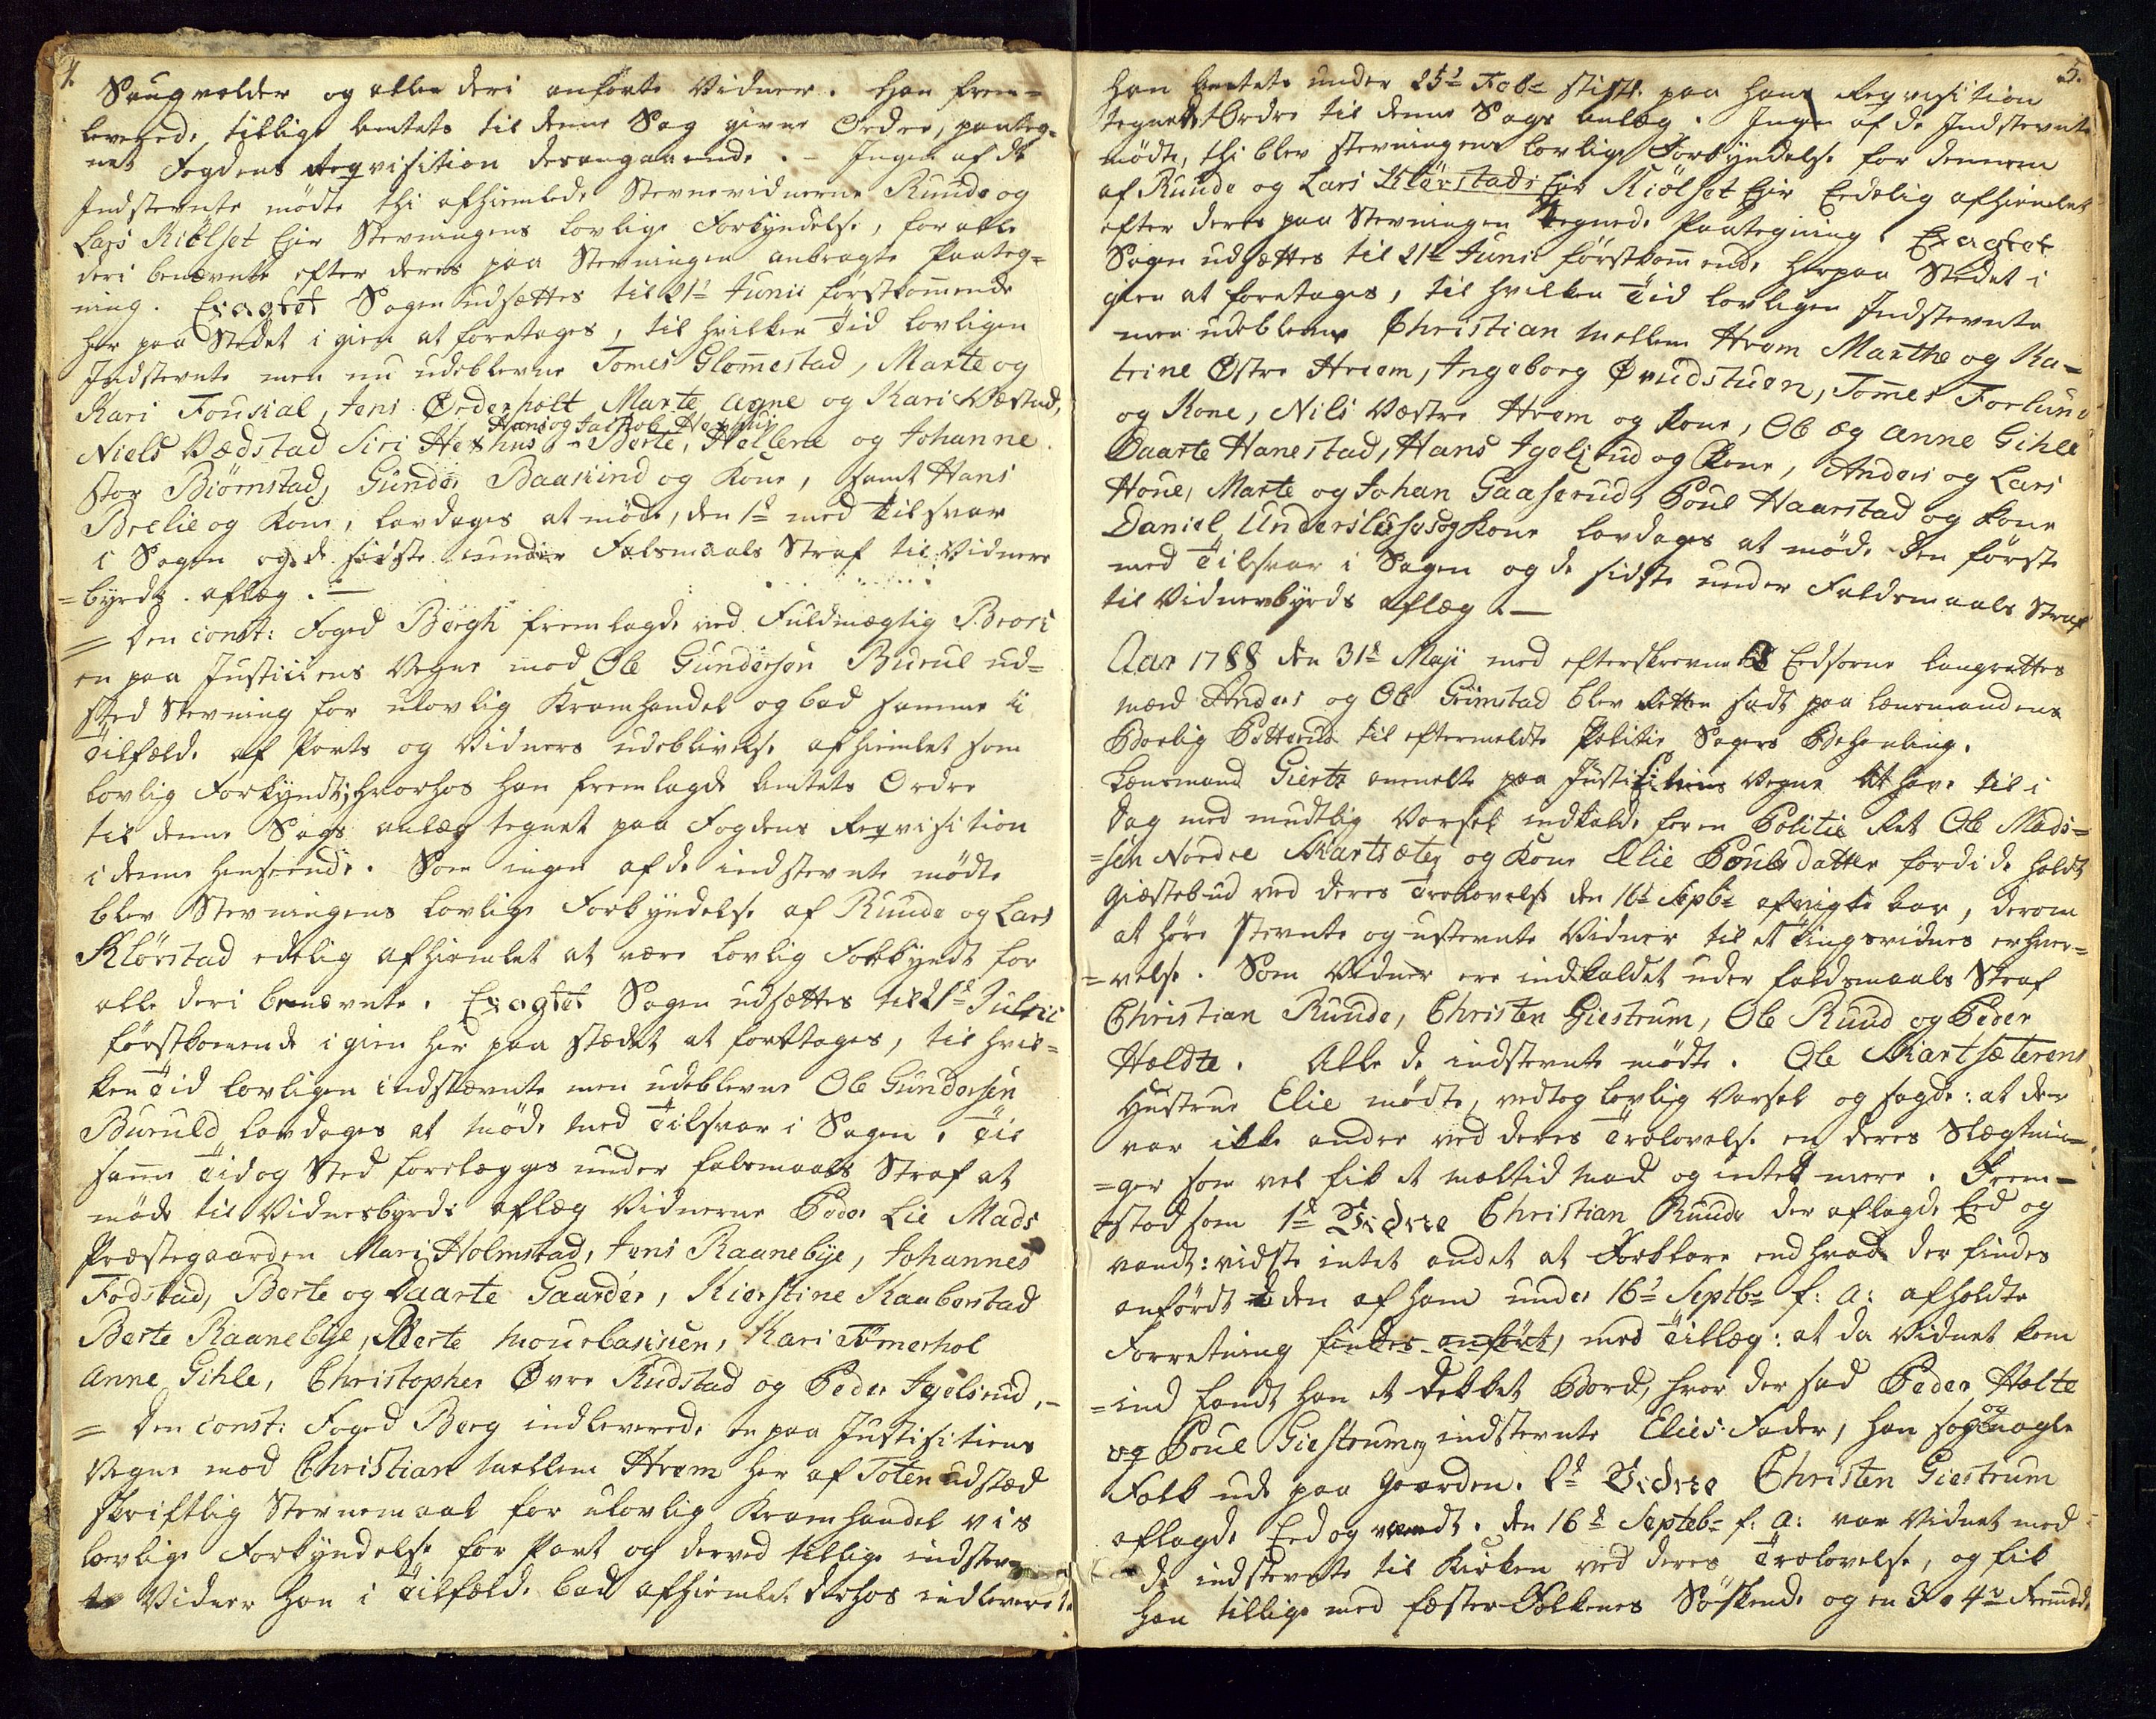 4.
Saugvolder og alle deri anførte Vidner. Han frem-
leverede tillige Amtets til denne Sag givne Ordre, paateg-
net Fogdens Reqvisition desangaaende. - Ingen af de
Indstevnte mødte thi afhiemlede Stevnevidnerne Ruude og
Lars Kiölset Eier Stevningens lovlige Forkyndelse, for alle
deri benævnte efter deres paa Stevningen anbragte Paateg-
ning. Eragtet Sagen udsættes til 21de Junii førstkommende
her paa Stedet igien at foretages, til hvilken Tid lovligen
Indstevnte men nu udeblevne Tomes Glomestad, Marte og
Kari Fousial, Jens Ørderholt Marte Agne og Kari Næstad,
Hans og Jachob Hexhus
Niels Vædstad Siri Hexhus - Berte, Hellene og Johanne
Stor Biørnstad, Gunder Baasiind og Kone, samt Hans
Brelie og Kone, lovdages at møde, den 1de med Tilsvar
i Sagen og de sidste under Falsmaals Straf til Vidnes-
=byrds aflæg. -
= Den const: Foged Børgh fremlagde ved Fuldmægtig P. Brors
en paa Justicens Vegne mod Ole Gundersen Buruul ud-
sted Stevning for ulovlig Kramhandel og bad samme i
Tilfælde af Parts og Vidners udeblivelse afhiemlet som
lovlig Forkyndt; hvorhos han fremlagde Amtets Ordre
til denne Sags anlæg tegnet paa Fogdens Reqvisition
i denne henseende. Som ingen af de indstevnte mødte
blev Stevningens lovlige Forkyndelse af Ruude og Lars
Klörstad edelig afhiemlet at være lovlig Forkyndt for
alle deri benævnte. Eragtet Sagen udsættes til 21de Julii
førstkomende igien her paa stædet at foretages, til hvil-
ken Tid lovligen indstævnte men udeblevne Ole Gundersen
Buruld lovdages at møde med Tilsvar i Sagen. Til
samme Tid og Sted forelægges under falsmaals Straf at
møde til Vidnesbyrds aflæg Vidnerne Peder Lie Mads
Præstegaarden Mari Holmstad, Jens Raanebye, Johannes
Fodstad, Berte og Daarte Gaarder, Kierstine Kaaberstad
Berte Raanebye, Berte Mourbakken, Kari Tømerhol
Anne Gihle, Christopher Øvre Rudstad og Peder Igelsrud, -
= Den const: Foged Berg indleverede en paa Justisitiens
Vegne mod Christian Mellem Hrom her af Toten udstæd
skriftlig Stevnemaal for ulovlig Kramhandel vis
lovlige Forkyndelse for Part og derved tillige indstevn-
te Vidner han i Tilfælde bad afhiemlet derhos indleverede
5.
han Amtets under 25de Febr sidstl. paa hans Reqvisition
tegnede Ordre til denne Sags anlæg. Ingen af de Indstevnte
mødte, thi blev stevningens lovlige Forkyndelse for dennem
af Ruude og Lars Klørstads Eie Kiölset Eier Eedelig afhiemlet
efter deres paa Stevningen tegnede Paategning. Eragtet
Sagen udsættes til 21de Junii førstkommende herpaa Stedet i
gien at foretages, til hvilken Tid lovligen Indstevnte
men udeblevne Christian Mellem Hrom Marthe og Ka-
trine Østre Hreem, Ingeborg Øvudstuen, Tomes Forlund
og Kone, Nils Væstre Hrom og Kone, Ole og Anne Gihle
Daarte Hanestad, Hans Igelsrud og Kone, Anders og Lars
Houe, Marte og Johan Gaaserud, Poul Haarstad og Kone
Daniel Underslus og Kone lovdages at møde den første
med Tilsvar i Sagen og de sidste under Faldsmaals Straf
til Vidnesbyrds aflæg. -
Aar 1788 den 31de Maji med efterskrevne 2 Eedsorne laugrettes
mænd Anders og Ole Grimstad blev Retten sadt paa lænsmandens
Boelig Potterud til eftermeldte Politie Sagers Behanling.
Lensmand Giertz anmelte paa Justisitiens Vegne at have til i
Dag med mundtlig Varsel indkalde for en Politie Ret Ole Mads-
=sen Nordre Skartsæter og Kone Elie Poulsdatter fordi de holdt
giæstebud ved deres Trolovelse den 16de Septbr afvigte Aar, derom
at høre stevnte og ustevnte Vidner til et tingsvidnes erhver-
=velse. Som Vidner ere indkaldet under faldsmaals Straf
Christian Ruude, Christen Giestrum, Ole Ruud og Peder
Holdte. Alle de indstevnte mødte. Ole Skartsæterens
Hustrue Elie mødte, vedtog lovlig Varsel og sagde: at der
var ikke andre ved deres Trolovelse en deres Slægtnin-
=ger som vel fik et maaltid Mad og intet mere. Frem-
=stod som 1de Vidne Christian Ruude der aflagde Eed og
vandt: vidste intet andet at Forklare end hvad der findes
anført i den af ham under 16de Septbr f: a: afholdte
Forretning findes anført, med Tillæg: at da Vidnet kom
=ind fandt han et dekket Bord, hvor der sad Peder Holte
og Poul Giestrum, indstevnte Elies Fader, han saae og nogle
Folk ude paa Gaarden. 2de Vidne Christen Giestrum
aflagde Eed og vandt. Den 16de Septebr f: a: var Vidnet med
de indstevnte til Kirken ved deres Trolovelse, og fik
han tillige med fæster-Folkenes Søskende og en 3 a 4re Fremmede